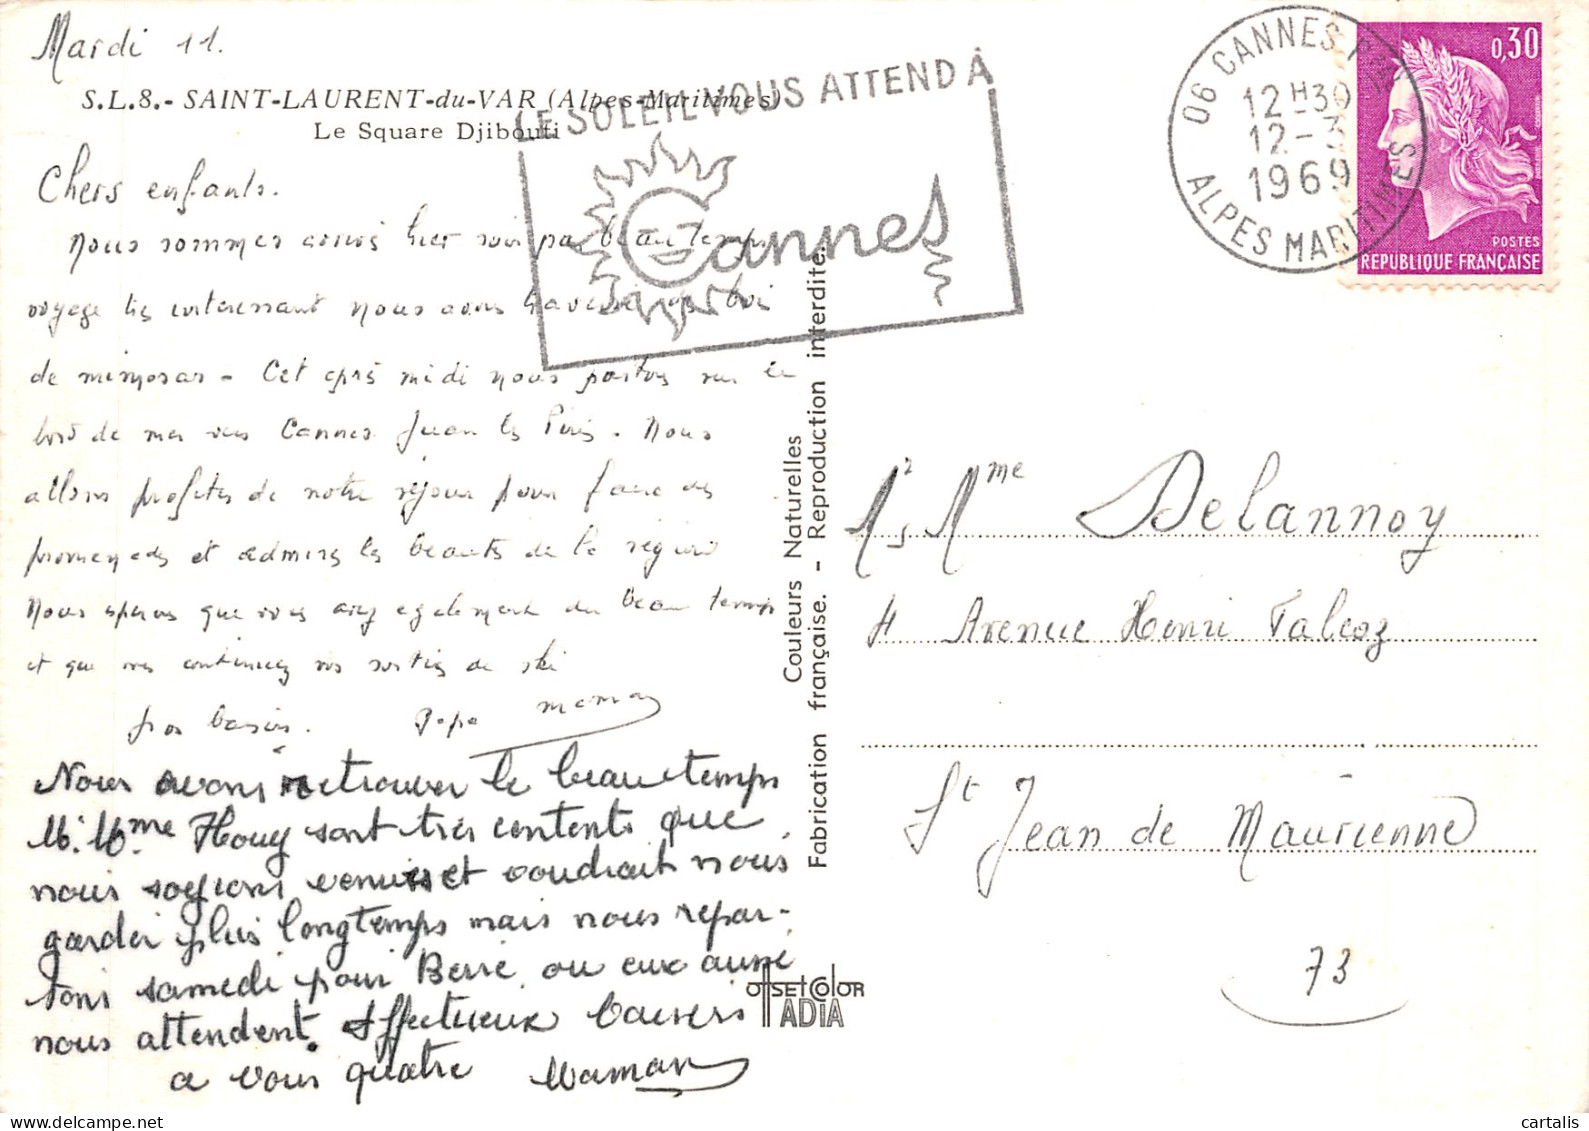 Mardi 11.
S.L.8.- SAINT-LAURENT-du-VAR (Alpes-Maritimes)
Le Square Djibouti
Chers enfants.
Nous sommes arrivés hier soir par beau temps
voyage très intéressant nous avons traversé des bois
de mimosas - Cet après midi nous partons sur le
bord de mer vers Cannes Juan les Pins. Nous
allons profiter de notre séjour pour faire des
promenades et admirer les beautés de la région
Nous espérons que vous avez également du beau temps
et que vous continuez vos sorties de ski
gros baisers. Papa maman
Nous avons retrouver le beau temps
M. Mme Houy sont très contents que
nous soyions venus et voudrait nous
garder plus longtemps mais nous repar-
tons samedi pour Berre ou eux aussi
nous attendent. Affectueux baisers
a vous quatre Maman
LE SOLEIL VOUS ATTEND À
Cannes
06 CANNES PAL
12H30
12-3
1969
ALPES MARITIMES
0,30
POSTES
REPUBLIQUE FRANÇAISE
Couleurs Naturelles
Fabrication française. - Reproduction interdite.
OFFSET COLOR
ADIA
Mr Mme Delannoy
4 Avenue Henri Falcoz
St Jean de Maurienne
73
cartalis